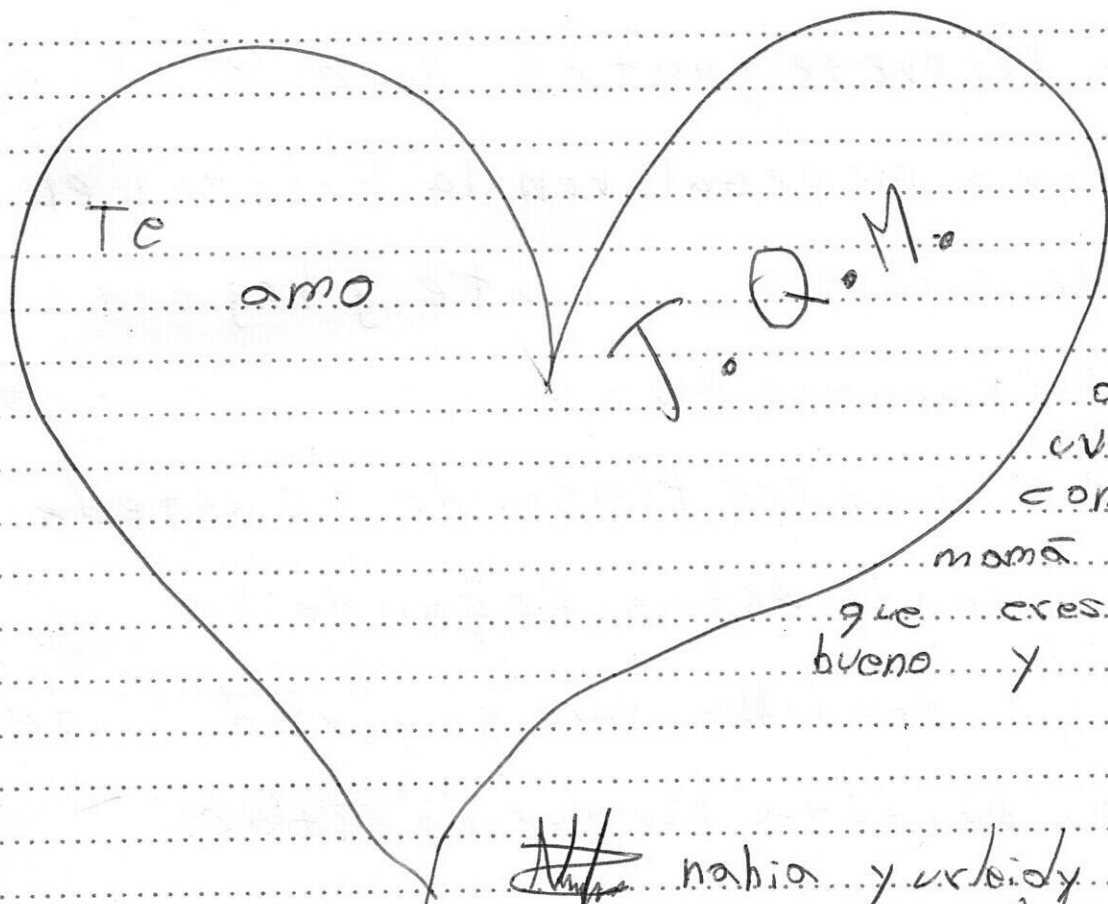 Te
amo
T. Q. M.
mamá
que eres
bueno y
nahia yurleidy